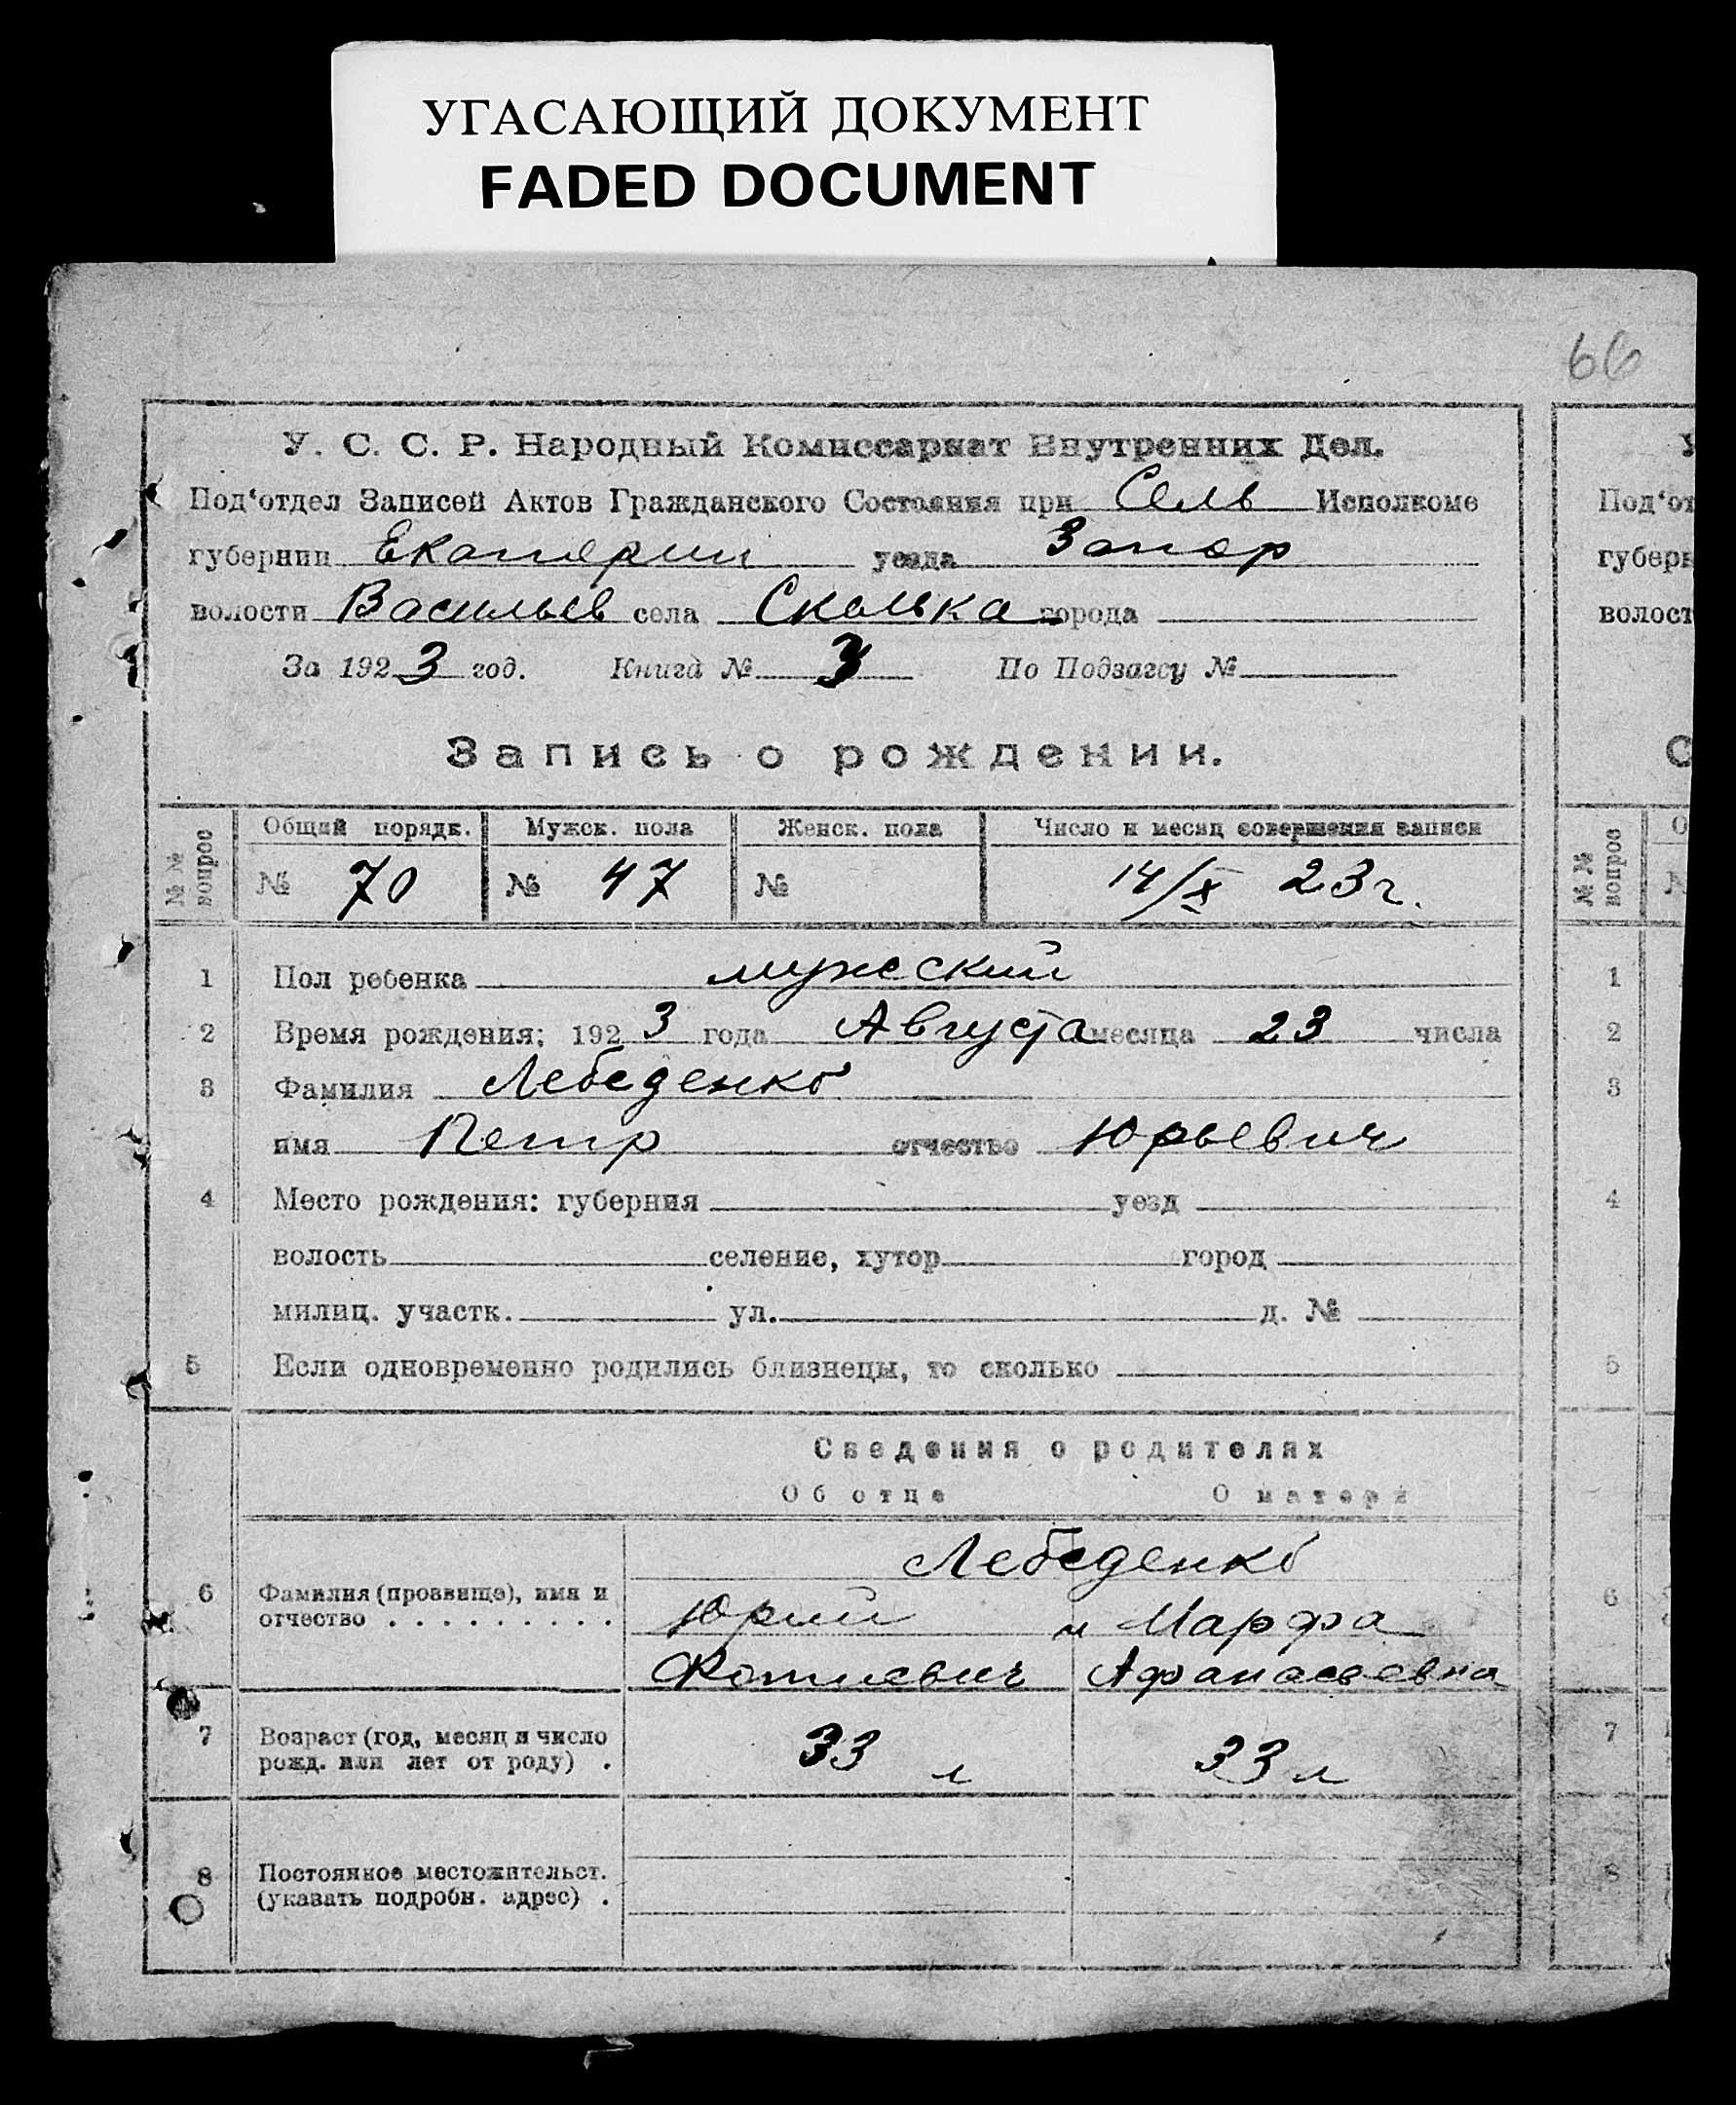 УГАСАЮЩИЙ ДОКУМЕНТ
FADED DOCUMENT
66
У. С. С. Р. Народный Комиссариат Внутренних Дел.
Под‘отдел Записей Актов Гражданского Состояния при Сель Исполкоме
губернии Екатерин уезда Запор
волости Васильев села Скелька города
За 1923 год. Книга № 3 По Подзагсу №
Запись о рождении.
№№ вопрос Общий порядк. Мужск. пола Женск. пола Число и месяц совершения записи
№ 70 № 47 № 14/X 23 г.
1 Пол ребенка мужеский
2 Время рождения: 1923 года Августа месяца 23 числа
3 Фамилия Лебеденко
имя Петр отчество Юрьевич
4 Место рождения: губерния уезд
волость селение, хутор город
милиц. участк. ул. д. №
5 Если одновременно родились близнецы, то сколько
Сведения о родителях
Об отце О матери
Лебеденко
6 Фамилия (прозвище), имя и Юрий и Марфа
отчество . . . . . . . . . Фотиевич Афанасьевна
7 Возраст (год, месяц и число 33 л 33 л
рожд. или лет от роду) .
8 Постоянное местожительст.
(указать подробн. адрес) .
У
Под‘от
губерн
волост
С
№№ вопрос
О
№
1
2
3
4
5
6
7
8